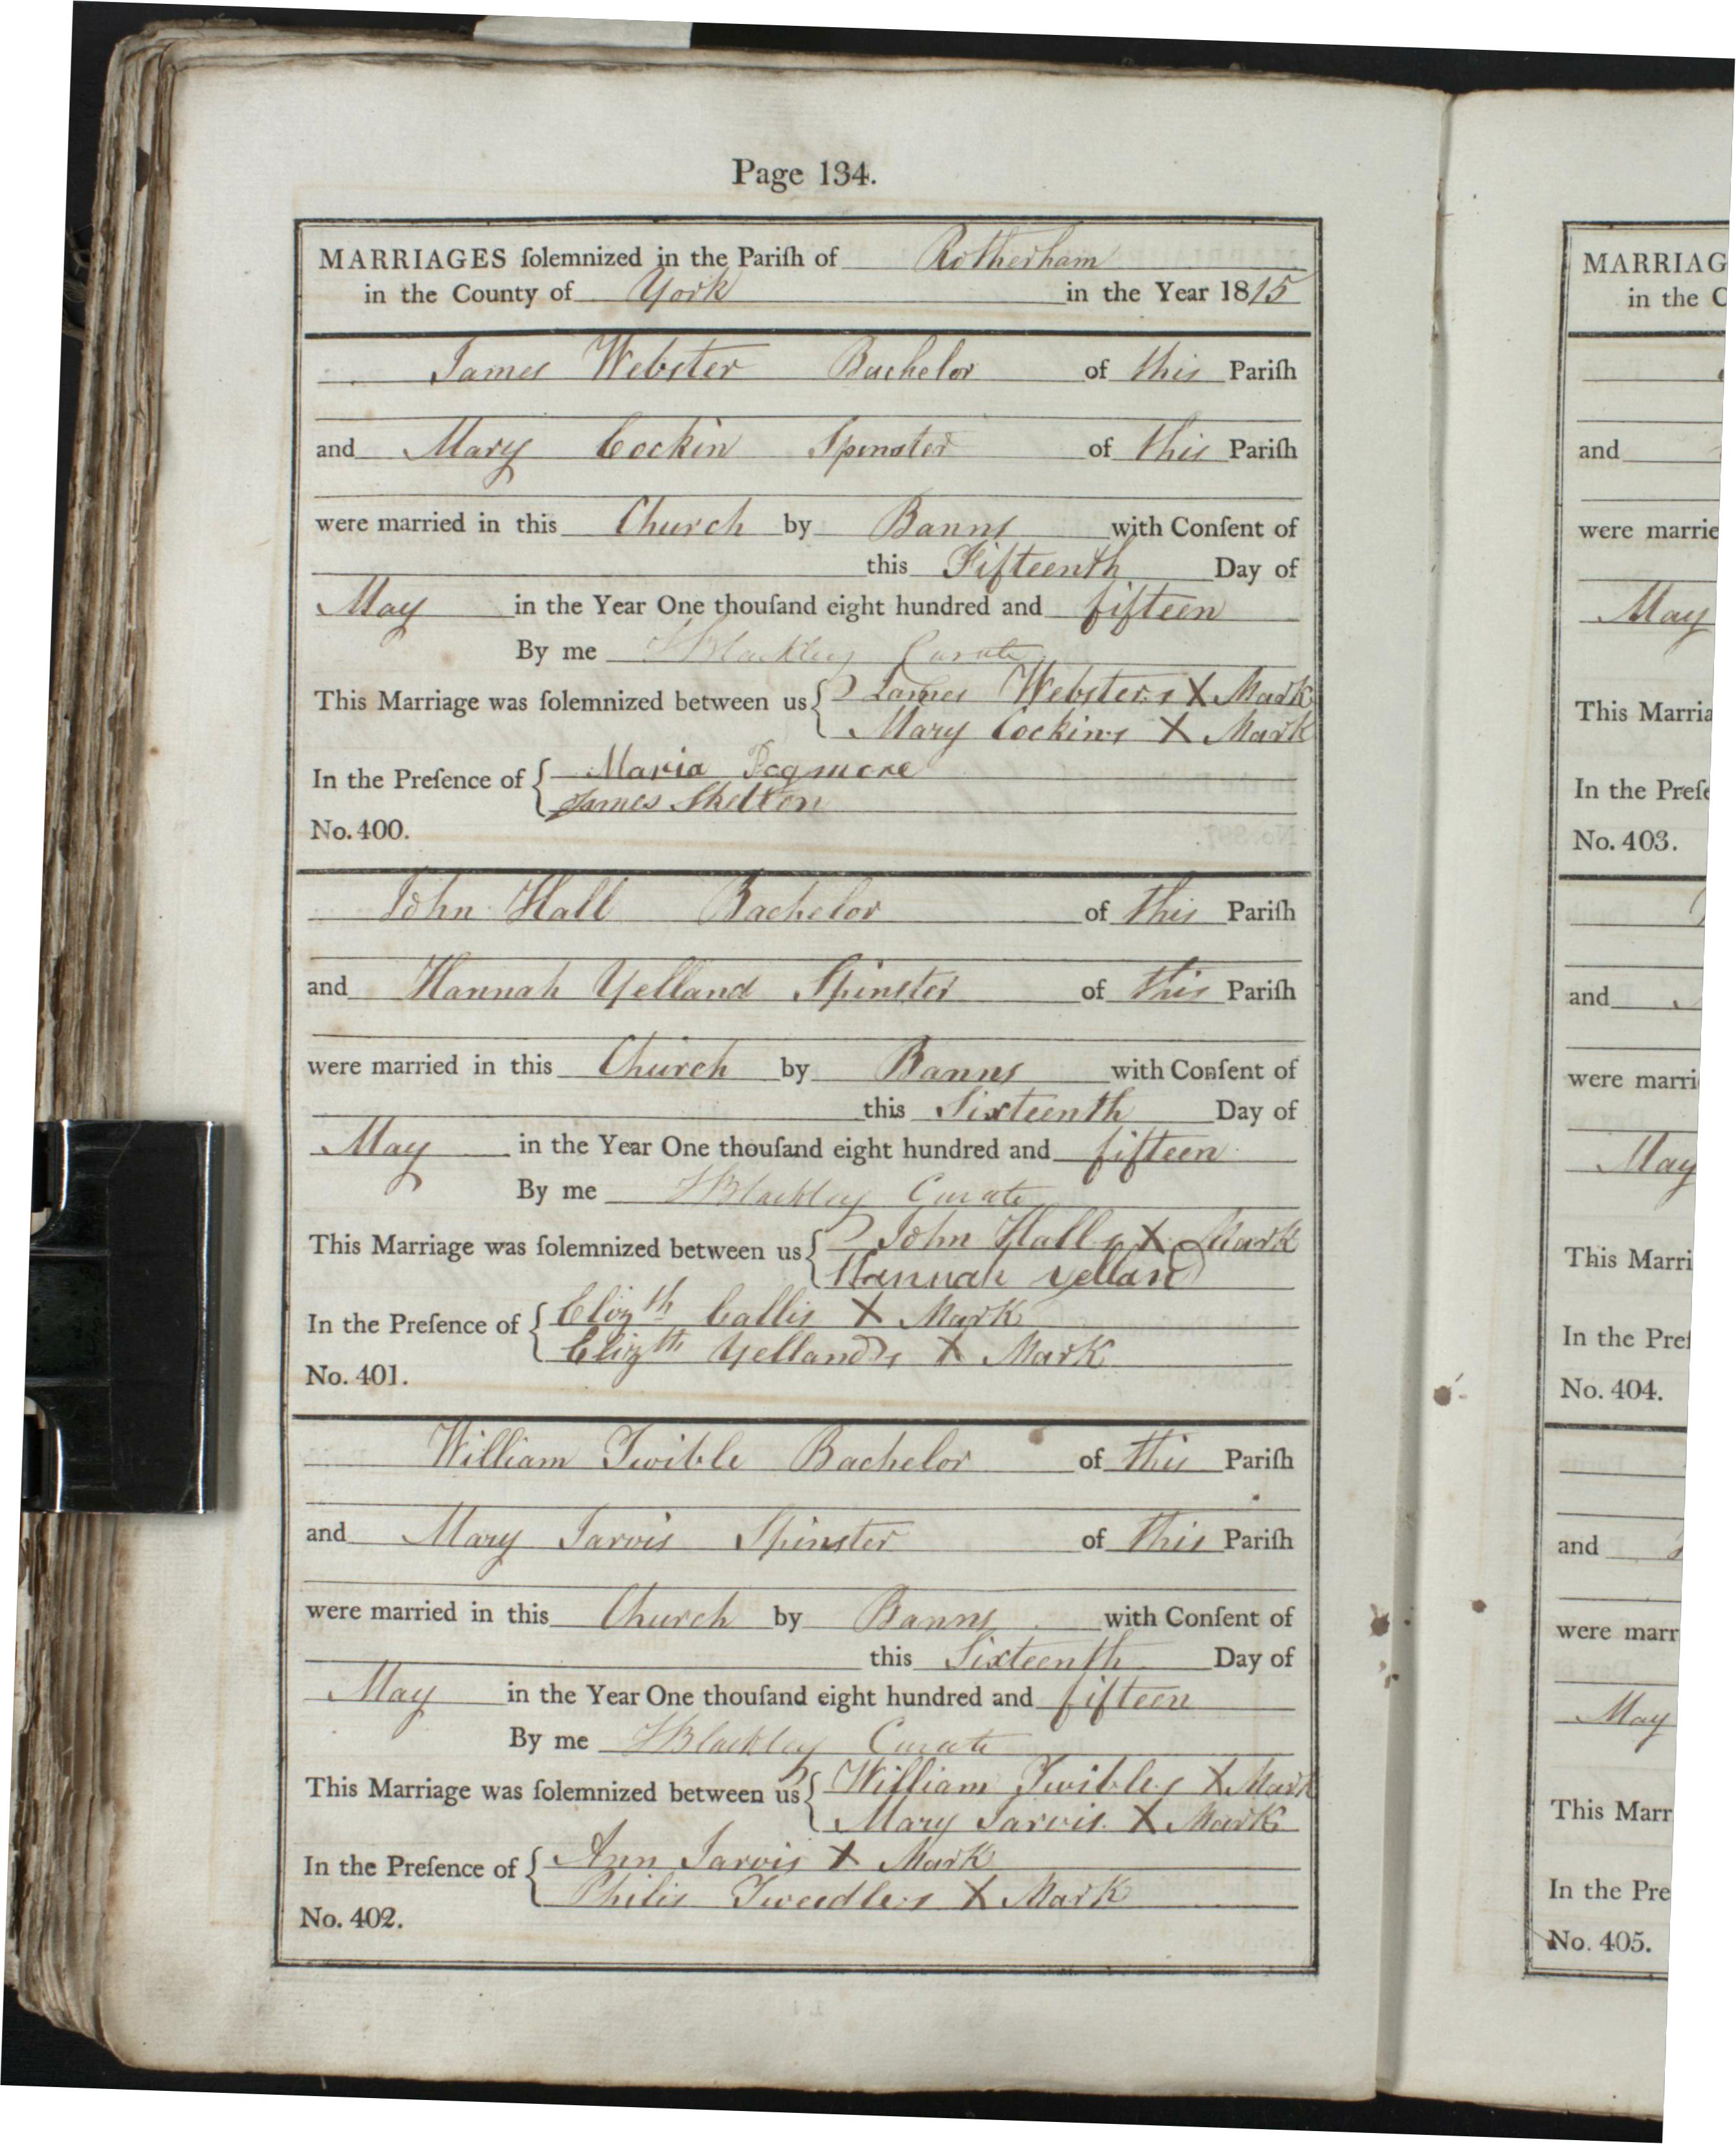 Page 134.
MARRIAGES ſolemnized in the Pariſh of Rotherham
in the County of York in the Year 1815
James Webster Bachelor of this Pariſh
and Mary Cockin Spinster of this Pariſh
were married in this Church by Banns with Conſent of
this Fifteenth Day of
May in the Year One thouſand eight hundred and fifteen
By me Blackley Curate
This Marriage was ſolemnized between us James Webster's X Mark
Mary Cockin's X Mark
In the Preſence of Maria
James Skelton
No. 400.
John Hall Bachelor of this Pariſh
and Hannah Yelland Spinster of this Pariſh
were married in this Church by Banns with Conſent of
this Sixteenth Day of
May in the Year One thouſand eight hundred and fifteen
By me Blackley Curate
This Marriage was ſolemnized between us John Hall's X Mark
Hannah Yelland
In the Preſence of Elizth Callis X Mark
Elizth Yelland's X Mark
No. 401.
William Twible Bachelor of this Pariſh
and Mary Jarvis Spinster of this Pariſh
were married in this Church by Banns with Conſent of
this Sixteenth Day of
May in the Year One thouſand eight hundred and fifteen
By me Blackley Curate
This Marriage was ſolemnized between us William Twible's X Mark
Mary Jarvis X Mark
In the Preſence of Ann Jarvis X Mark
Philis Tweedle's X Mark
No. 402.
MARRIAG
in the C
and
were marrie
May
This Marria
In the Preſe
No. 403.
and
were marri
May
This Marri
In the Preſ
No. 404.
and
were marr
May
This Marr
In the Pre
No. 405.